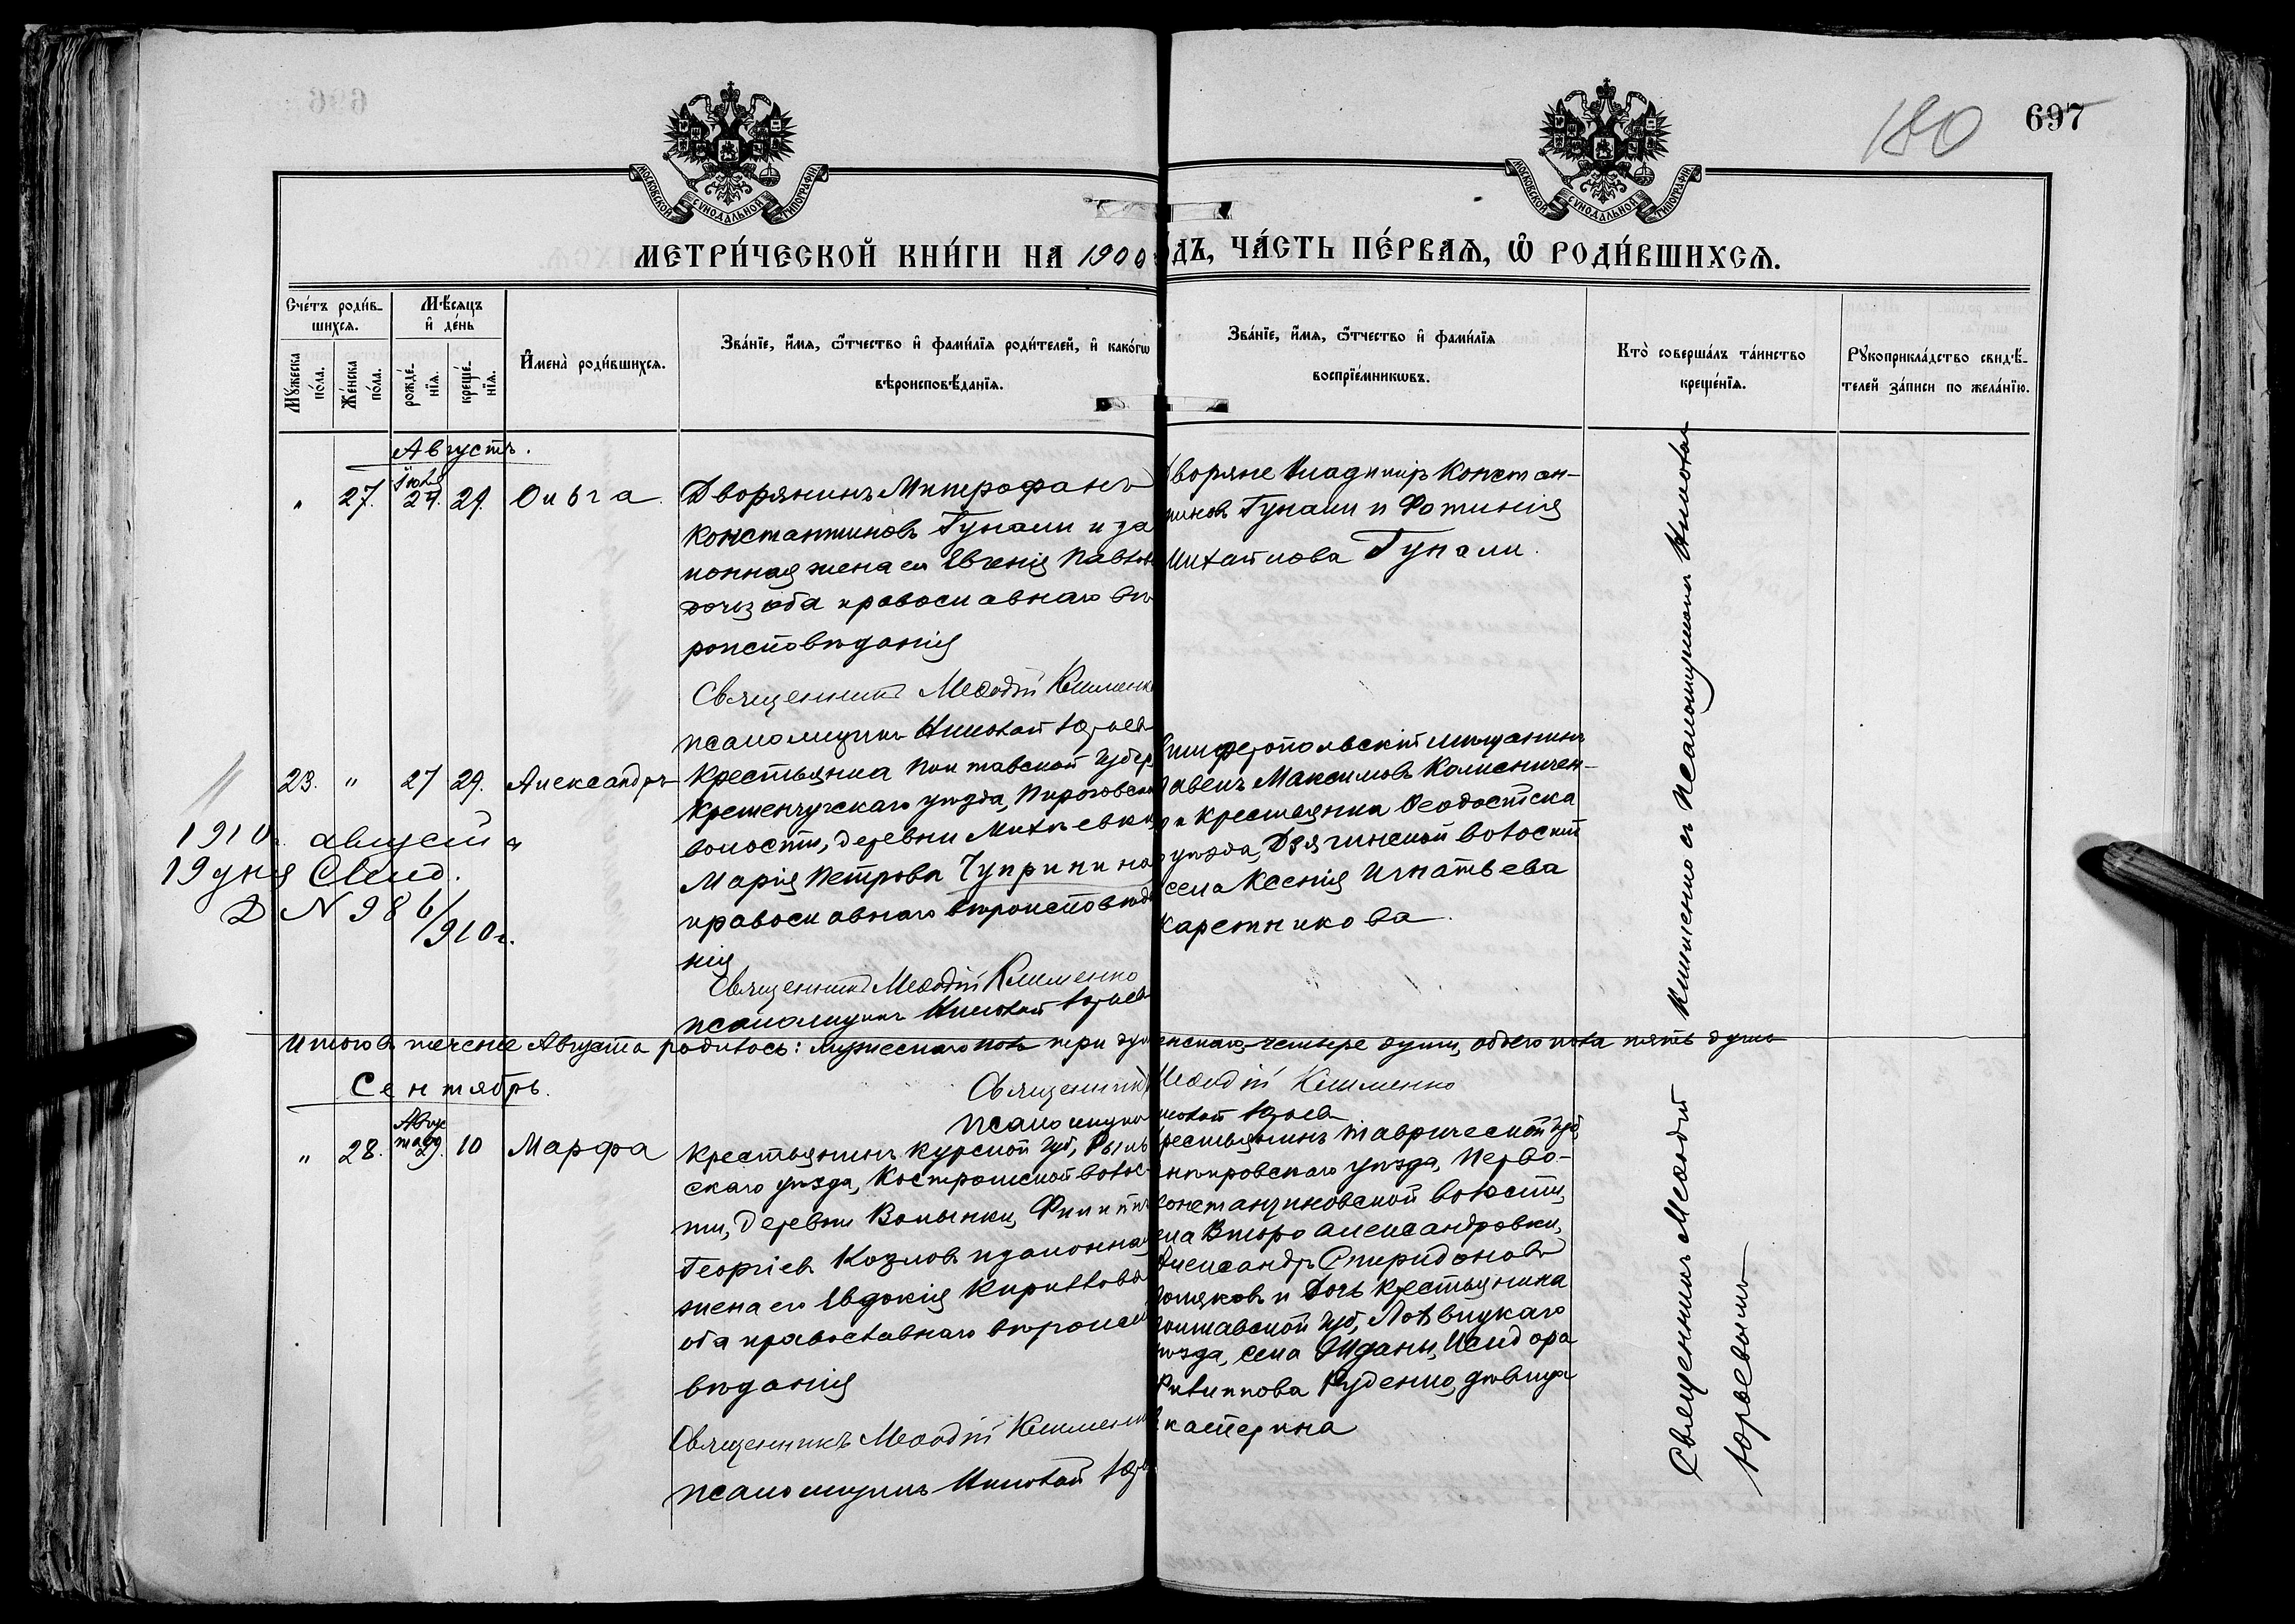 697
180
МОСКОВСКОЙ СѴНОДАЛЬНОЙ ТИПОГРАФІИ
МОСКОВСКОЙ СѴНОДАЛЬНОЙ ТИПОГРАФІИ
МЕТРИ́ЧЕСКОЙ КНИ́ГИ НА 1900 ДЪ, ЧА́СТЬ ПЕ́РВАѦ, Ѡ҆ РОДИ́ВШИХСѦ.
Сче́тъ роди́в-
шихсѧ.
Мꙋжеска по́ла.
Же́нска по́ла.
Мѣ́сѧцъ
и҆ де́нь
рожде́-
нїѧ.
креще́-
нїѧ.
И҆мена̀ роди́вшихсѧ.
Зва́нїе, и҆́мѧ, ѻ҆́тчество и҆ фамі́лїѧ роди́телей, и҆ како́гѡ
вѣроисповѣ́данїѧ.
Зва́нїе, и҆́мѧ, ѻ҆́тчество и҆ фамі́лїѧ
воспрїе́мникѡвъ.
Кто̀ соверша́лъ та́инство
креще́нїѧ.
Рꙋкоприкла́дство свидѣ́-
телей за́писи по жела́нїю.
Августъ.
" 27. Іюля 24. 29. Ольга
Дворянинъ Митрофанъ
Константиновъ Гунали и за
конная жена его Евгенія Павлова
оба православнаго вѣ
роисповѣданія
Священникъ Меѳодій Клименко
псаломщикъ Николай Юрьев
воряне Владимір Констан-
тиновъ Гунали и Фотинія
Михайлова Гунали.
23. " 27 29. Александръ
Крестьянка Полтавской Губер
Кременчугскаго уѣзда, Пироговской
волости, деревни Михѣевки
Марія Петрова Чуприна
православнаго вѣроисповѣда
нія
Священникъ Меѳодій Клименко
псаломщикъ Николай Юрьев
имферопольскій мѣщанинъ
авелъ Максимовъ Колисничен-
о и крестьянка Ѳеодосійска
уѣзда, волости
села Ксенія Игнатьева
Каретникова.
1910г. августа
19 дня Свид.
№ 986/910г.
Итого въ теченіе Августа родилось: мужескаго пола три душ енскаго четыре души, обоего пола пять душъ
Священникъ Меѳодій Клименко
псаломщикъ иколай Юрьев
Сентябрь.
" 28. Августа 29. 10 Марфа
Крестьянинъ Курской губ, Рыль
скаго уѣзда, Костромской волос-
ти, деревни Волынки, Филиппъ
Георгіев Козловъ и законная
жена его Евдокія Кириллова
оба православнаго вѣроиспо
вѣданія
Священникъ Меѳодій Клименко
псаломщикъ Николай Юрь
рестьянинъ Таврической губ,
нѣпровскаго уѣзда, Перво-
онстантиновской волости,
ела Второ Александровки,
Александръ Спиридоновъ
оляковъ и Дочь крестьянина
олтавской губ, Лохвицкаго
уѣзда, села Жданы, Исидора
Филиппова Руденко, дѣвица
Екатерина
Священникъ Меѳодій Клименко съ Псаломщикомъ Николаемъ
Юрьевымъ